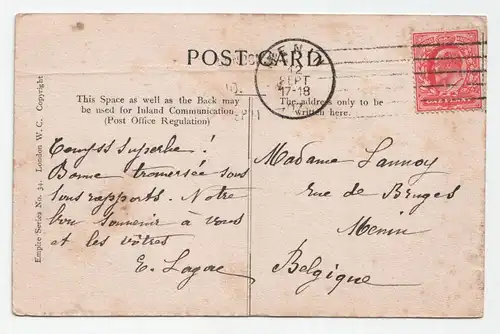 POST CARD
MENIN
12
SEPT
17-18
This Space as well as the Back may
be used for Inland Communication
(Post Office Regulation)
The address only to be
written here.
Empire Series No. 34. London W. C. Copyright
Temps superbe !
Bonne traversée sous
tous rapports. Notre
bon souvenir à vous
et les vôtres
E.
Madame Lannoy
rue de Bruges
Menin
Belgique